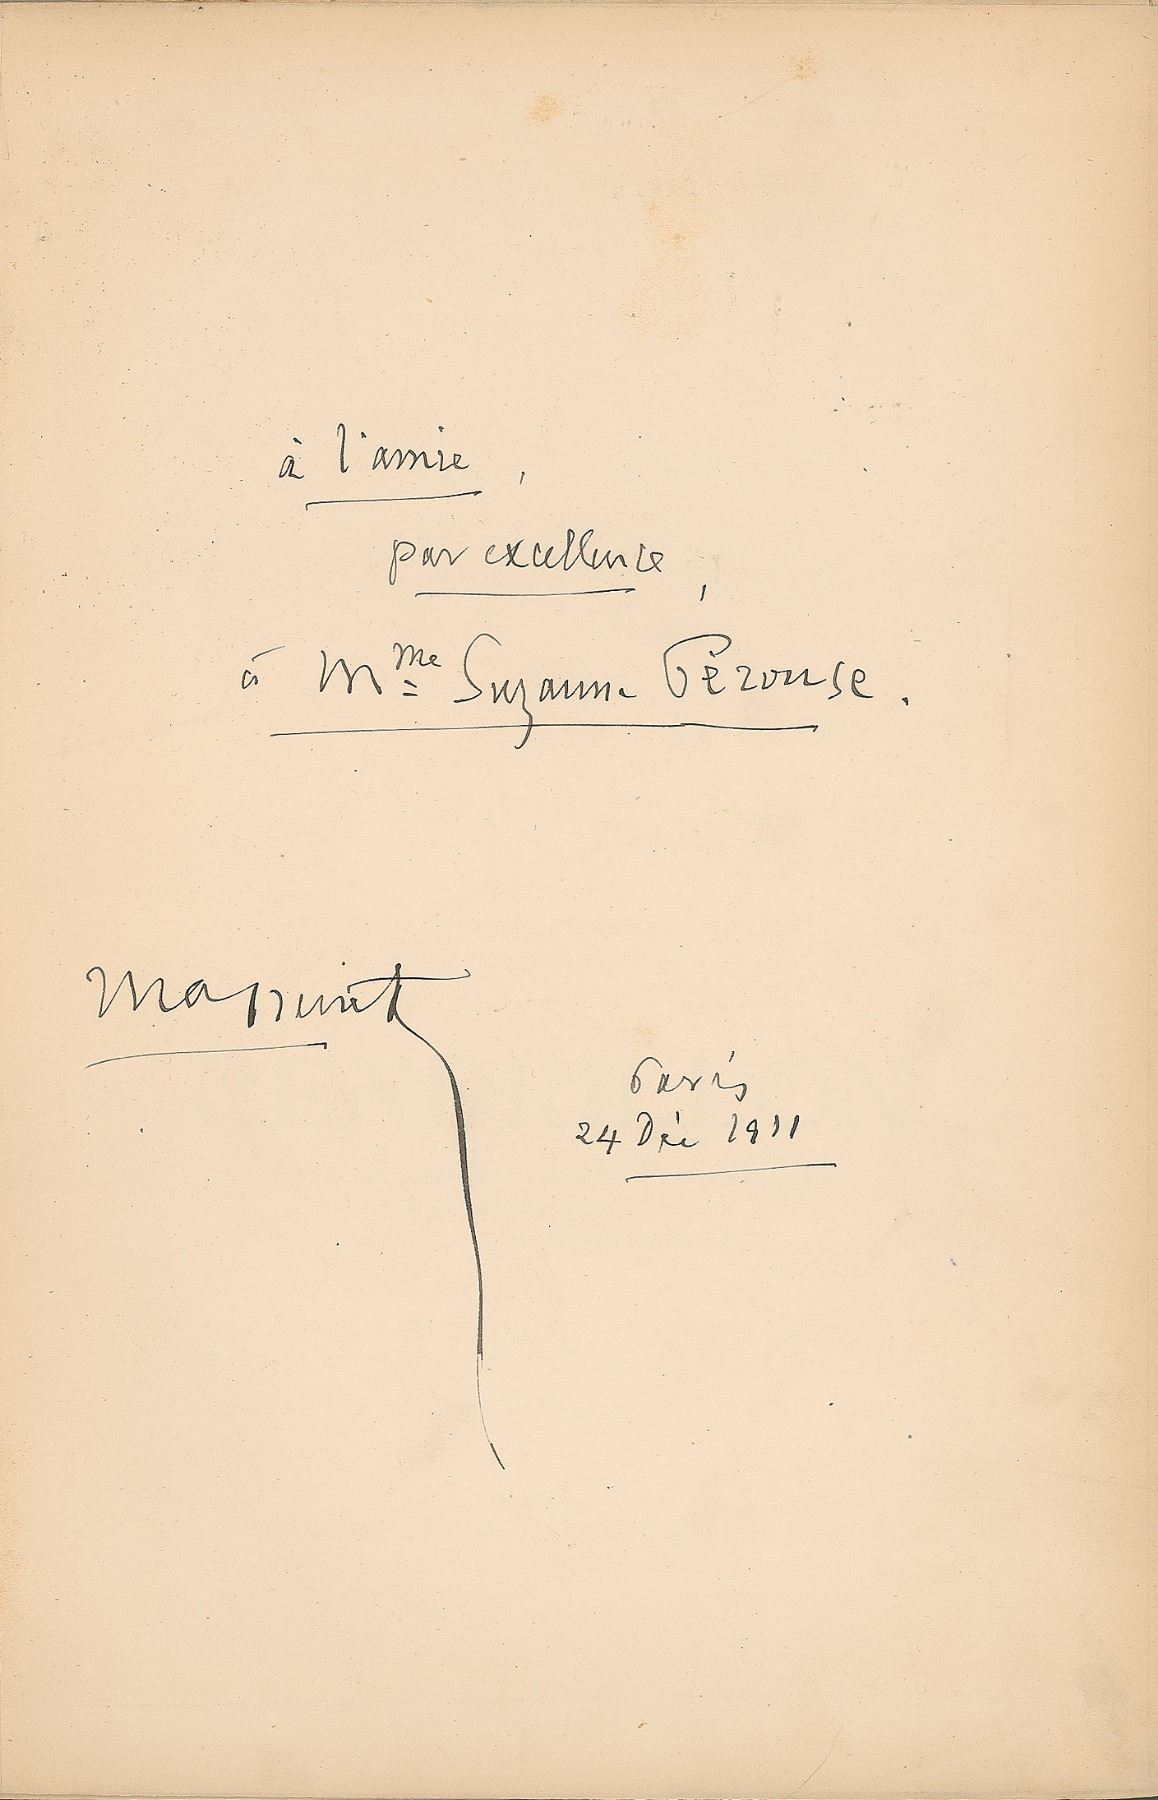 à l'amie,
par excellence,
à Mme Suzanne Pérouse.
Massenet
Paris
24 Déc 1911